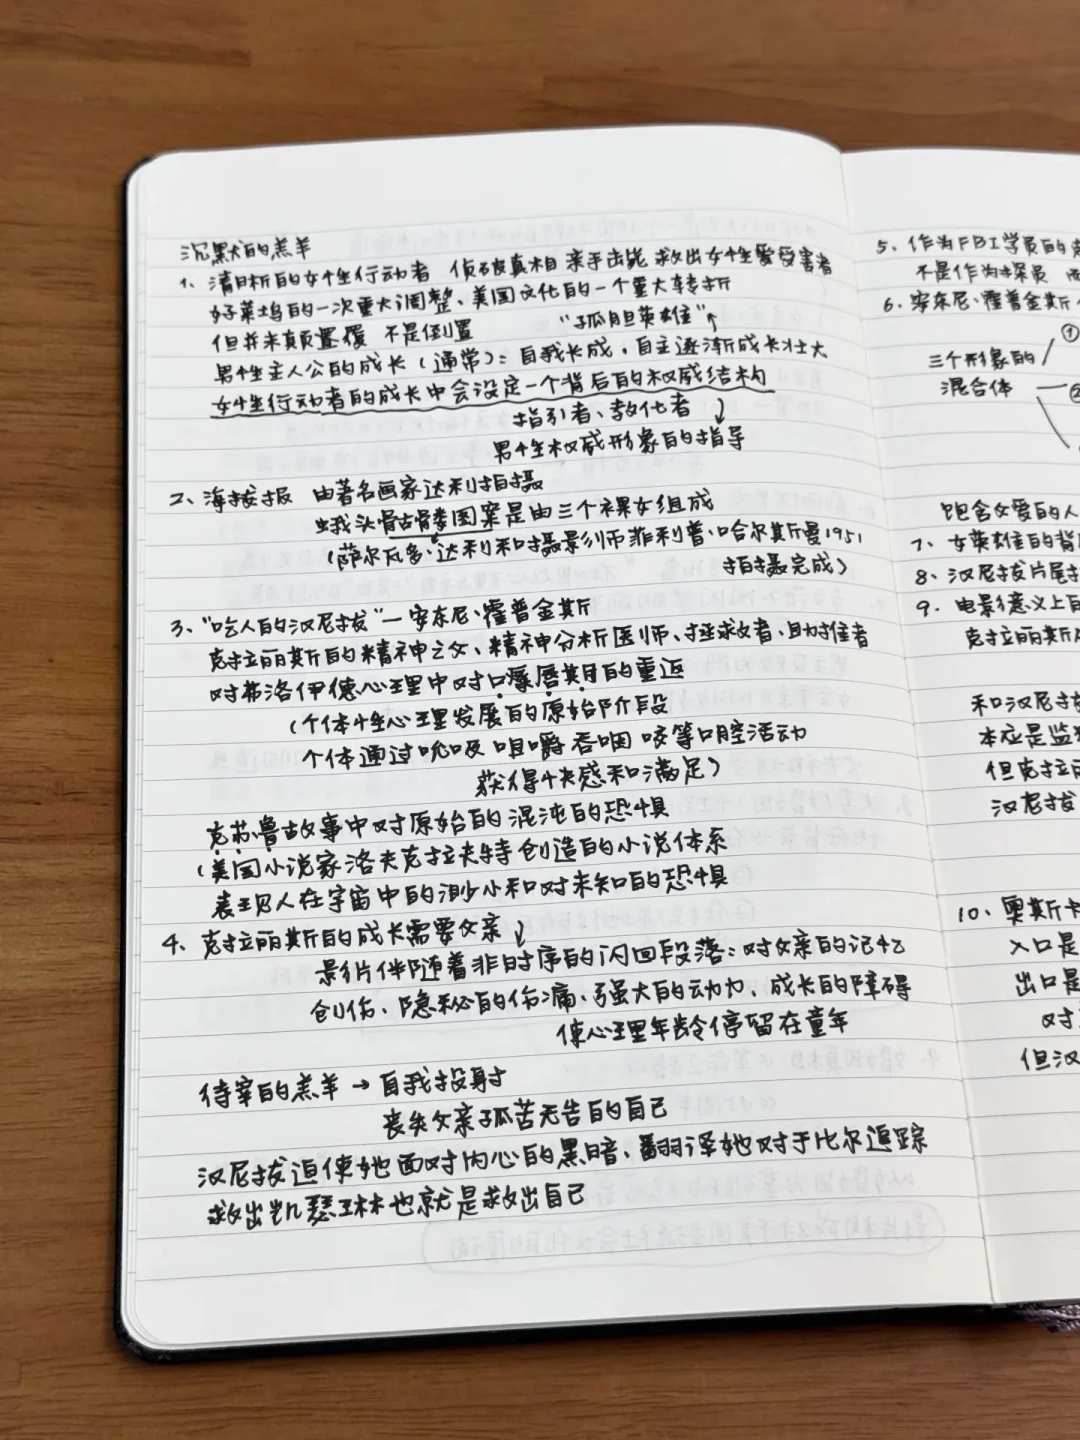 沉默的羔羊
1、清晰的女性行动者 侦破真相 亲手击毙 救出女性受害者
好莱坞的一次重大调整、美国文化的一个重大转折
但并未真颠覆 不是倒置 "孤胆英雄"
男性主人公的成长(通常): 自我长成,自主逐渐成长壮大
女性行动者的成长中会设定一个背后的权威结构
指引者、教化者
男性权威形象的指导
2、海报 由著名画家达利拍摄
蛾头骷髅图案是由三个裸女组成
(萨尔瓦多·达利和摄影师菲利普·哈尔斯曼1951
拍摄完成)
3、"吃人的汉尼拔"—安东尼·霍普金斯
克拉丽斯的精神之父、精神分析医师、拯救者、助推者
对弗洛伊德心理中对口唇期的重返
(个体性心理发展的原始阶段
个体通过吮吸 咀嚼 吞咽 咬等口腔活动
获得快感和满足)
克苏鲁故事中对原始的混沌的恐惧
(美国小说家洛夫克拉夫特创造的小说体系
表现人在宇宙中的渺小和对未知的恐惧
4、克拉丽斯的成长需要父亲
影片伴随着非时序的闪回段落:对父亲的记忆
创伤、隐秘的伤痛、强大的动力、成长的障碍
使心理年龄停留在童年
待宰的羔羊→自我投射
丧失父亲孤苦无告的自己
汉尼拔迫使她面对内心的黑暗、翻译她对于比尔追踪
救出凯瑟琳也就是救出自己
5、作为FBI学员的
不是作为探员
6、安东尼·霍普金斯
①
三个形象的
混合体
②
饱含父爱的人
7、女英雄的背
8、汉尼拔片尾
9、电影意义上
克拉丽斯
和汉尼拔
本应是监
但克拉丽
汉尼拔
10、奥斯卡
入口是
出口是
对
但汉